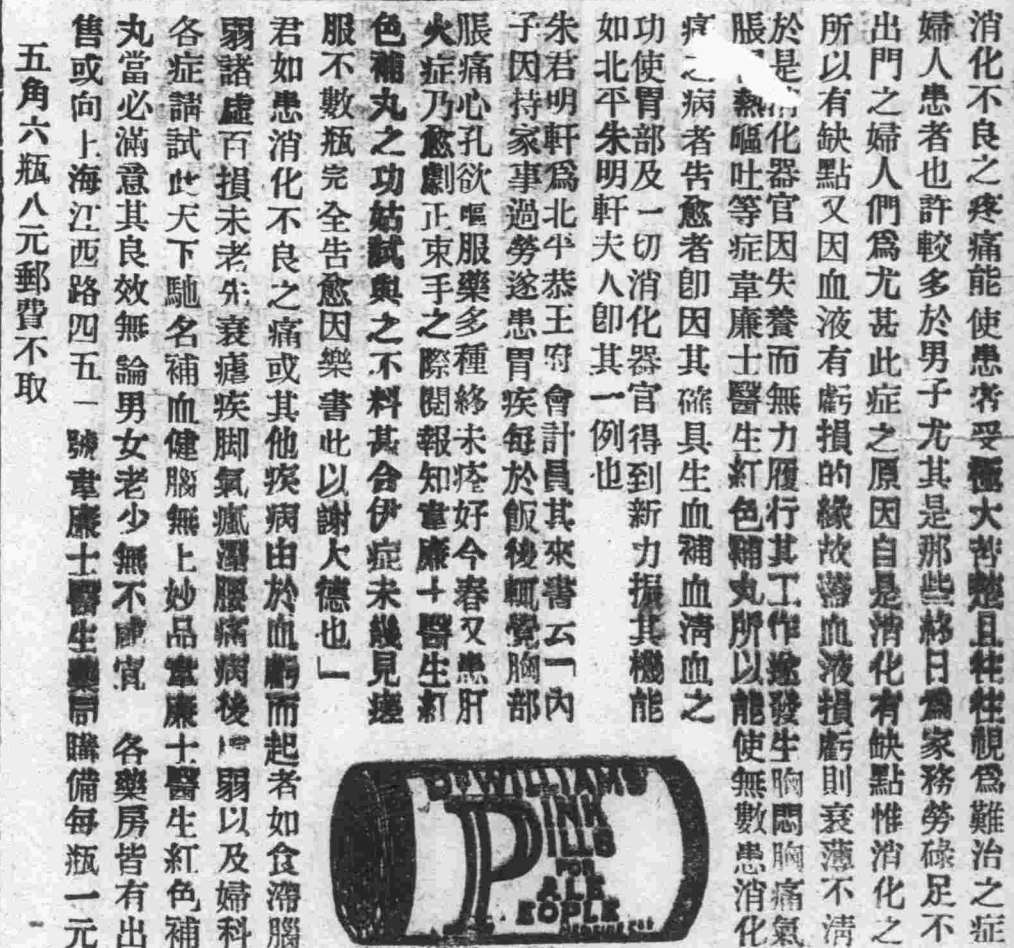 消化不良之疼痛能使患者受極大苦楚且往往視爲難治之症
婦人患者也許較多於男子尤其是那些終日爲家務勞碌足不
出門之婦人們爲尤甚此症之原因自是消化有缺點惟消化之
所以有缺點又因血液有虧損的緣故蓋血液損虧則衰薄不清
於是消化器官因失養而無力履行其工作遂發生胸悶胸痛氣
脹熱嘔吐等症韋廉士醫生紅色補丸所以能使無數患消化
之病者告愈者卽因其確具生血補血清血之
功使胃部及一切消化器官得到新力振其機能
如北平朱明軒夫人卽其一例也
朱君明軒爲北平恭王府會計員其來書云「內
子因持家事過勞遂患胃疾每於飯後輒覺胸部
脹痛心孔欲嘔服藥多種終未痊好今春又患肝
火症乃愈劇正束手之際閱報知韋廉士醫生紅
色補丸之功姑試與之不料甚合伊症未幾見瘥
服不數瓶完全告愈因樂書此以謝大德也」
君如患消化不良之痛或其他疾病由於血虧而起者如食滯腦
弱諸虛百損未老先衰瘧疾脚氣瘋濕腰痛病後弱以及婦科
各症請試此天下馳名補血健腦無上妙品韋廉士醫生紅色補
丸當必滿意其良效無論男女老少無不咸宜 各藥房皆有出
售或向上海江西路四五一號韋廉士醫生藥局購備每瓶一元
五角六瓶八元郵費不取
DR WILLIAMS
PINK
PILLS
FOR
PALE
PEOPLE